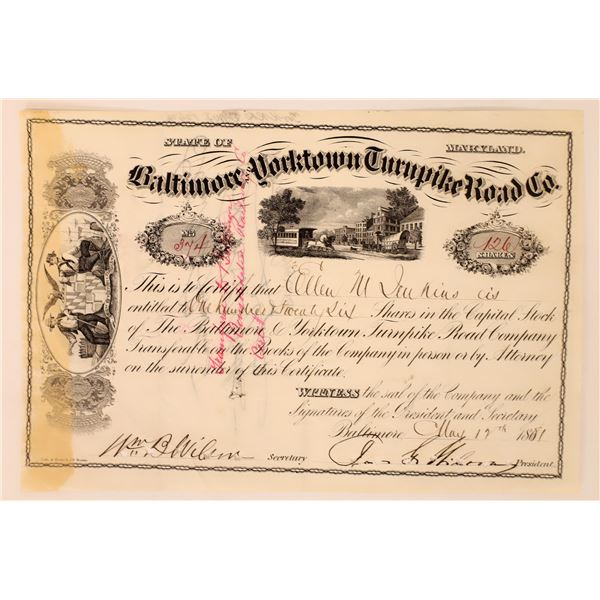 STATE OF MARYLAND.
Baltimore and Yorktown Turnpike Road Co.
No
374
126
SHARES
This is to Certify that Ellen M Jenkins is
entitled to One hundred & twenty Six Shares in the Capital Stock
of The Baltimore & Yorktown Turnpike Road Company
Transferable on the Books of the Company in person or by Attorney
on the surrender of this Certificate.
WITNESS the seal of the Company and the
Signatures of the President and Secretary
Baltimore May 12th 1881
Wm B Wilson Secretary President